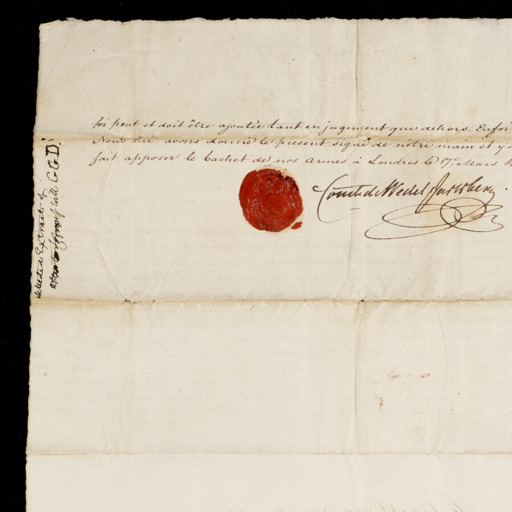 foi peut et doit être ajoutée tant en jugement que dehors. En foi
Nous lui avons donné le présent signé de nôtre main et y
fait apposer le Cachet de nos Armes à Londres le 17. Mars
Comte de Wedel Jarlsberg
Extract of
G.G.D.